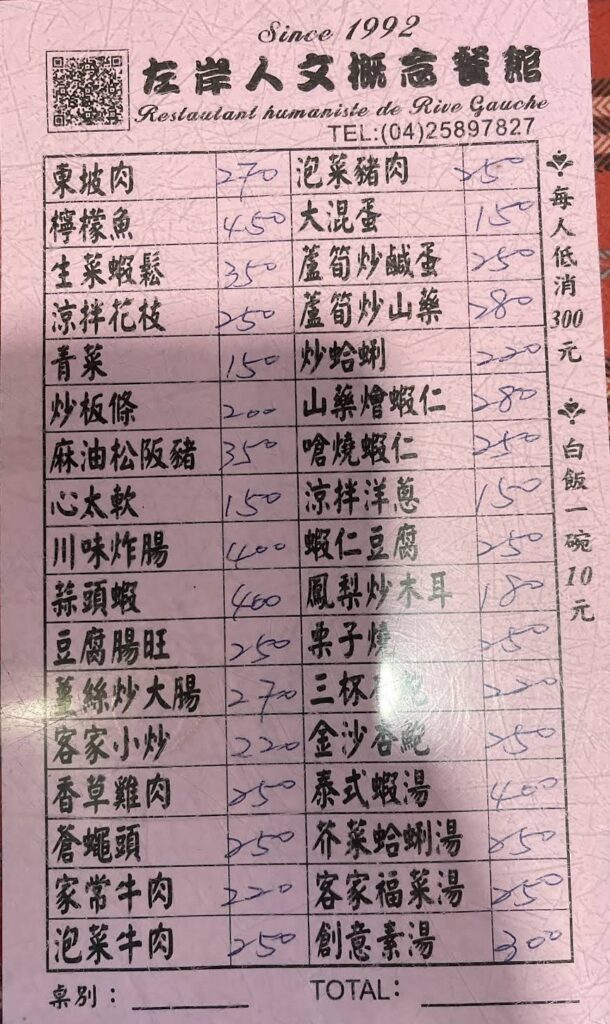 Since 1992
左岸人文概念餐館
Restautant humaniste de Rive Gauche
TEL:(04)25897827
東坡肉 270 泡菜豬肉 250
檸檬魚 450 大混蛋 150
生菜蝦鬆 350 蘆筍炒鹹蛋 250
涼拌花枝 250 蘆筍炒山藥 280
青菜 150 炒蛤蜊 220
炒板條 200 山藥燴蝦仁 280
麻油松阪豬 350 嗆燒蝦仁 250
心太軟 150 涼拌洋蔥 150
川味炸腸 400 蝦仁豆腐 250
蒜頭蝦 400 鳳梨炒木耳 180
豆腐腸旺 250 栗子燒 250
薑絲炒大腸 270 三杯 220
客家小炒 220 金沙杏鮑 250
香草雞肉 250 泰式蝦湯 400
蒼蠅頭 250 芥菜蛤蜊湯 250
家常牛肉 220 客家福菜湯 250
泡菜牛肉 250 創意素湯 300
每人低消300元
白飯一碗10元
桌別： TOTAL: